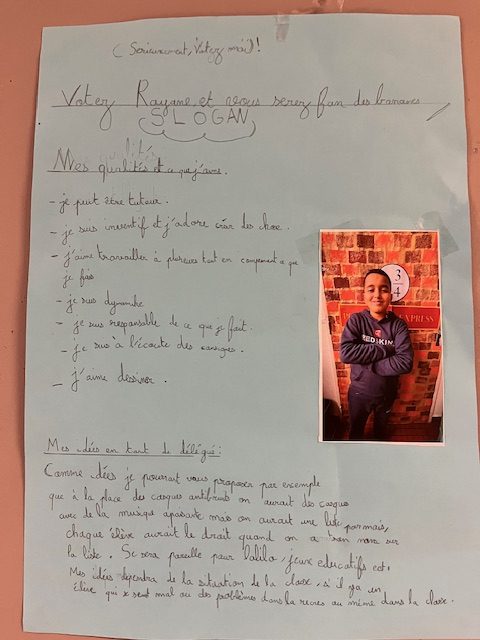 (Serieusement, Votez moi)!
Votez Rayane et vous serez fan des bananes
SLOGAN
Mes qualités et ce que j'aime.
- je peut être tuteur.
- je suis inventif et j'adore créer des chose.
- j'aime travailler à plusieurs tout en comprenant ce que
je fais
- je suis dynamike
- je suis responsable de ce que je fait.
- je suis à l'écoute des consignes.
- j'aime dessiner.
3/4
EXPRESS
Mes idées en tant de délégué:
Comme idées je pourrait vous proposer par exemple
que à la place des casques antibruits on aurait des casques
avec de la musique apaisante mais on aurait une liste par mois,
chaque élève aurait le droit quand on a son nom sur
la liste. Se sera pareille pour lalilo, jeux educatifs ect.
Mes idées dependra de la situation de la classe, s'il y a un
élève qui se sent mal ou des problèmes dans la recrée ou même dans la classe.